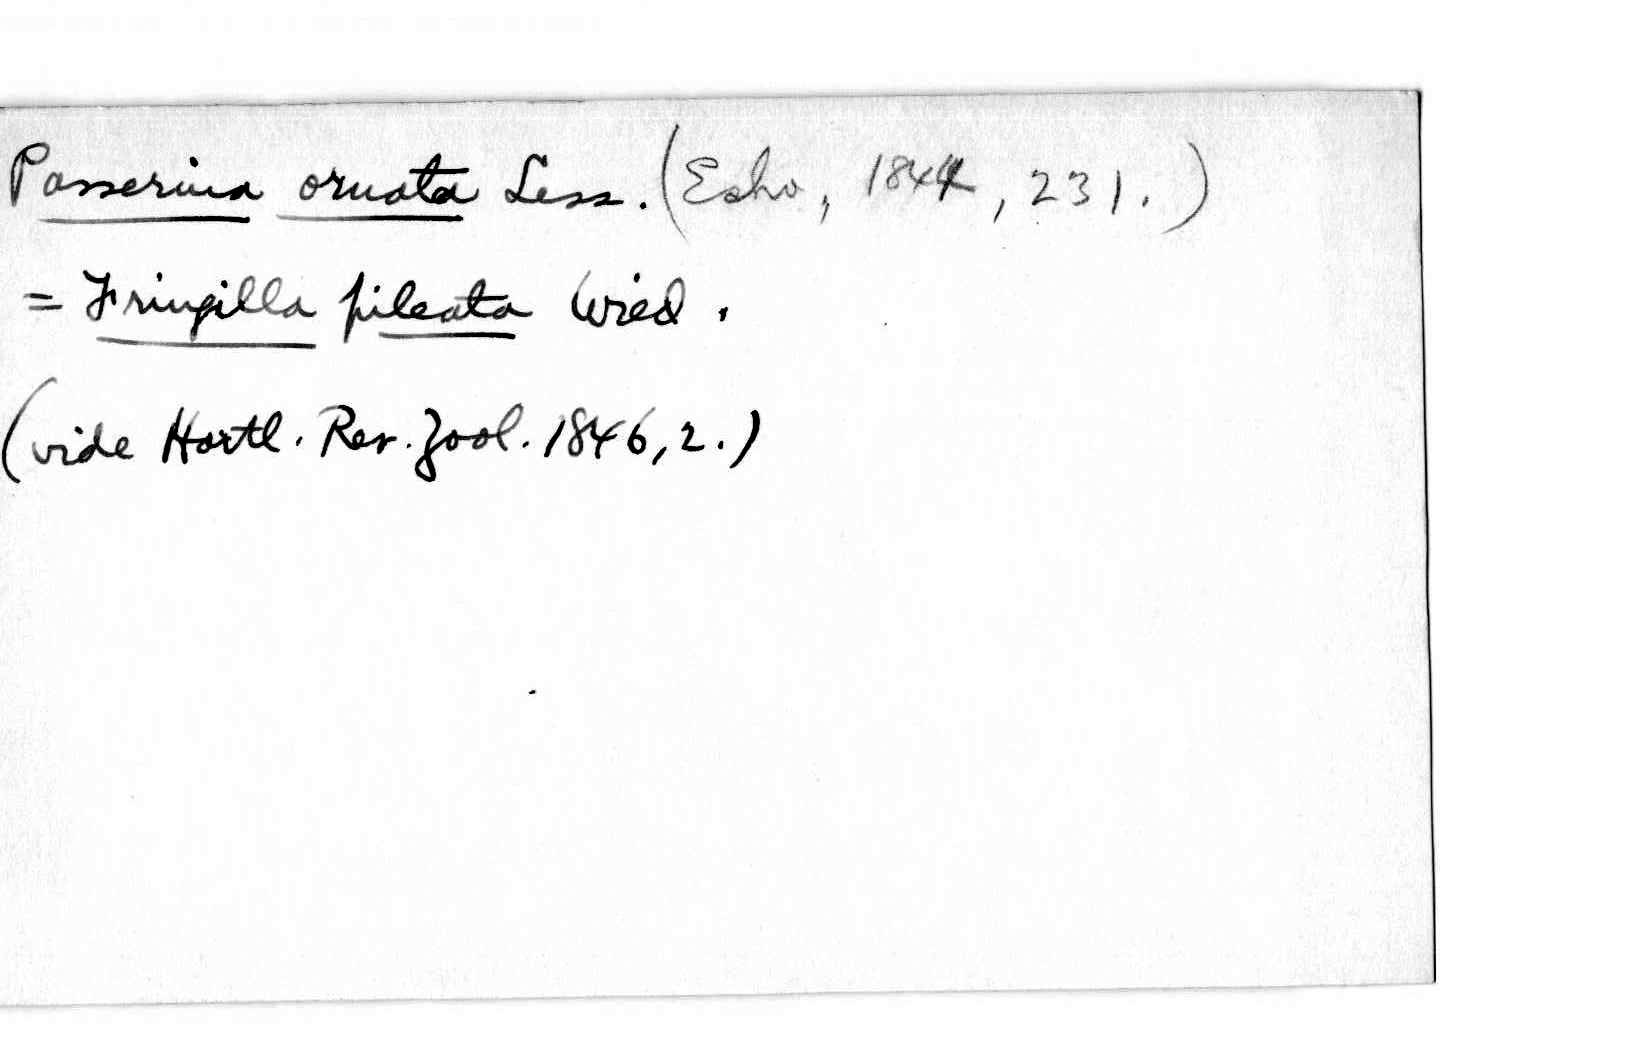 Passerina ornata Less. (Echo, 1844, 231.)
= Fringilla pileata Wied.
(vide Hartl. Rev. Zool. 1846, 2.)